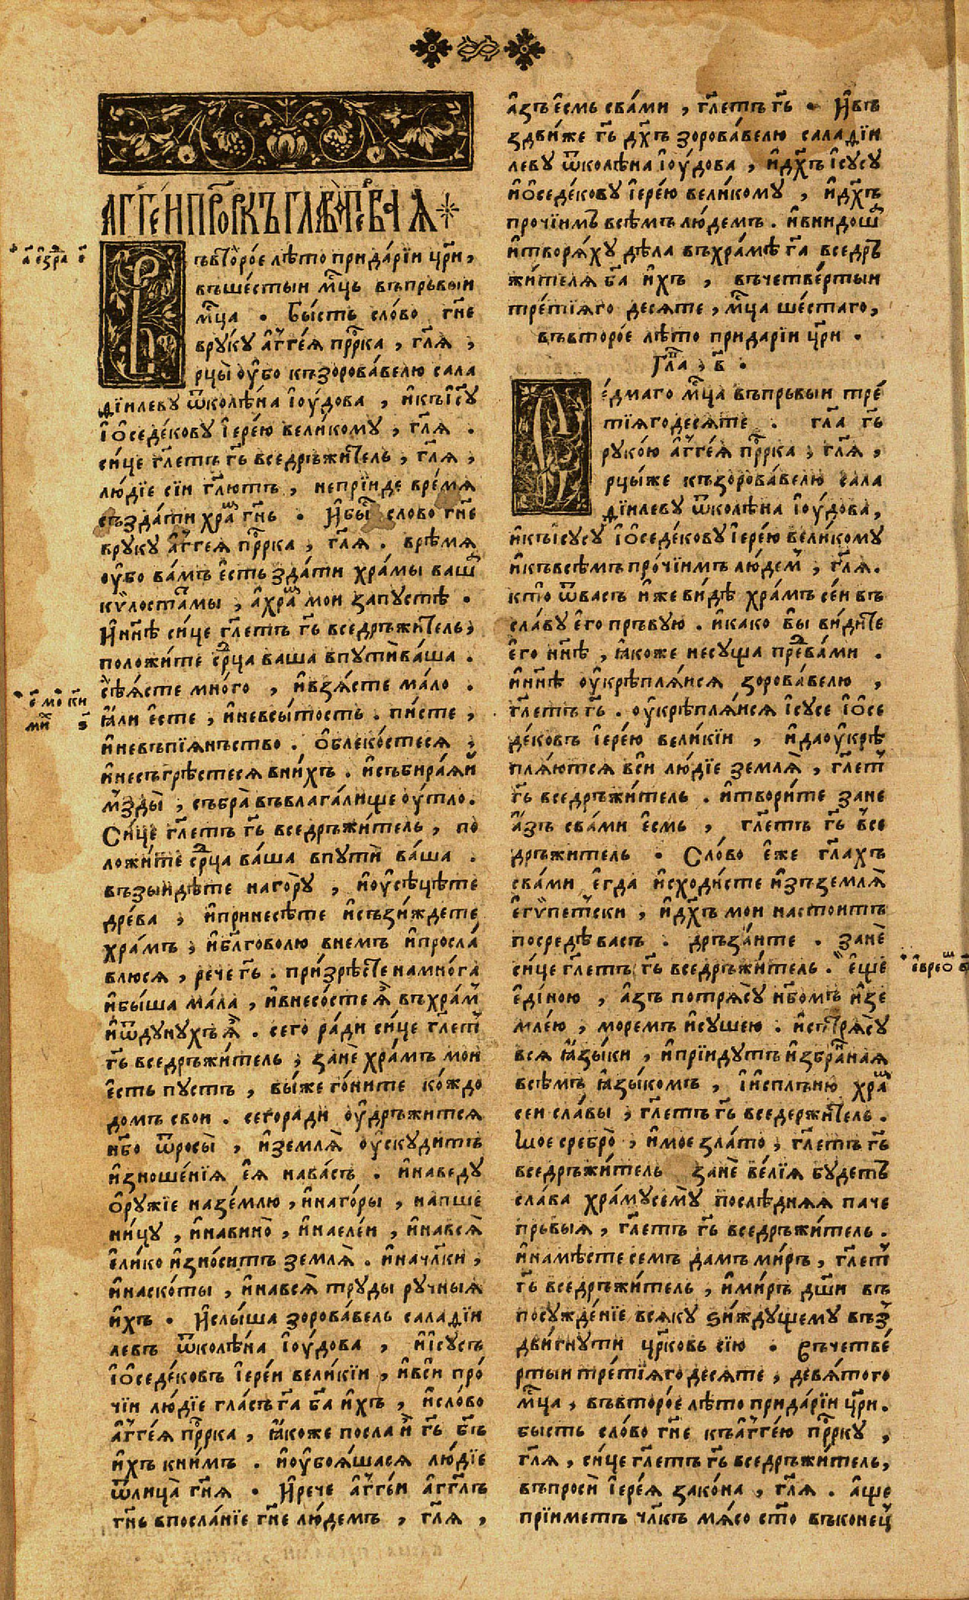 АГГЕИ ПРⷪ҇РОКЪ ГЛАВА ПЕРВАѦ
а҃ є҆́зра є҃
въ вто́рое лѣ́то при да́рїи цр҃и,
въ ше́стыи мц҃ь въ пръвыи
мц҃а . Бы́сть сло́во гн҃е
в рꙋкꙋ а҆гге́ѧ прр҃ка , гл҃ѧ ,
рцы̀ оу҆́бо къ зорова́велю сала
дїи́левꙋ ѿ колѣ́на і҆оу́дова , и҆ къ і҆с҃ꙋ
і҆ѡседе́ковꙋ і҆ере́ю вели́комꙋ , гл҃ѧ .
си́це гл҃етъ гь҃ вседръжи́тель , гл҃ѧ ,
лю́дїе сїи гл҃ютъ , не прїи́де вре́мѧ
създа́ти хра́м гн҃ь . И҆ бы́ сло́во гн҃е
в рꙋкꙋ а҆гге́ѧ прр҃ка , гл҃ѧ . врѣ́мѧ
оу҆́бо ва́мъ є҆́сть зда́ти хра́мы ваш
кѵлоста́мы , а҆ хра́м мои запꙋстѣ̀ .
И҆ нн҃ѣ си́це гл҃етъ гь҃ вседръжи́тель ,
положи́те срц҃а ва́ша в пꙋти̑ ва́ша .
сѣ́ѧсте мно́го , и҆ взѧ́сте ма́ло .
є҃ мо кн҃и
ми з҃
ꙗ҆́ли є҆́сте , и҆ не в сы́тость . пи́сте ,
и҆ не въ пїѧ́нъство . ѻ҆блеко́стесѧ ,
и҆ не съгрѣ́стесѧ в ни́хъ . и҆ събира́ѧи
мзды̀ , събра̀ въ влага́лище оу҆́тло .
Си́це гл҃етъ гь҃ вседръжи́тель , по
ложи́те срц҃а ва́ша в пꙋти̑ ва́ша .
възыи́дѣте на го́рꙋ , и҆ оу҆сѣцѣ́те
дре́ва , и҆ принесѣ́те и҆ съзи́ждете
хра́мъ , и҆ бл҃говолю̀ в не́мъ и҆ просла́
влюсѧ , речѐ гь҃ . призрѣ́сте на мно́га
и҆ бы́ша ма́ла , и҆ внесо́сте ѧ҆̀ въ хра́м
и҆ ѿдꙋнꙋ́хъ ѧ҆̀ . сего̀ ра́ди си́це гл҃ет
гь҃ вседръжи́тель , занѐ хра́мъ мои
є҆́сть пꙋстъ , вы́ же гони́те ко́ждо
до́мъ сво́и . сего̀ ра́ди оу҆дръжи́тсѧ
нб҃о ѿ росы̀ , и҆ землѧ̀ ѹскꙋди́тъ
и҆зноше́нїѧ є҆ѧ̀ на ва́съ . и҆ наведꙋ̀
ѻ҆рꙋ́жїе на зе́млю , и҆ на го́ры , на пше
ни́цꙋ , и҆ на вино̀ , и҆ на еле́и , и҆ на всѧ̀
є҆ли́ко и҆зно́ситъ землѧ̀ . и҆ на чл҃ки ,
и҆ на ско́ты , и҆ на всѧ̀ трꙋ́ды рꙋ́чныѧ
и҆́хъ . И҆ слы́ша зорова́вель саладїи́
левъ ѿ колѣ́на і҆оу́дова , и҆ і҆сꙋ́съ
і҆ѡседе́ковъ і҆ере́и вели́кїи , и҆ вси̑ про́
чїи лю́дїе гла́съ га҃ ба҃ и҆́хъ , и҆ сло́во
а҆гге́ѧ прр҃ка , ꙗ҆́коже посла̀ и҆̀ гь҃ бг҃ъ
и҆́хъ к ни́мъ . и҆ оу҆боѧ́шасѧ лю́дїе
ѿ лица̀ гн҃ѧ . И҆ речѐ а҆гге́и а҆гг҃лъ
гн҃ь в посла́нїе гн҃е лю́демъ , гл҃ѧ ,
а҆́зъ є҆́смь с ва́ми , гл҃етъ гь҃ . И҆ въ
здви́же гь҃ дх҃ъ зорова́велю саладїи́
левꙋ ѿ колѣ́на і҆оу́дова , и҆ дх҃ъ і҆сꙋ́сꙋ
и҆ ѻ҆седе́ковꙋ і҆ере́ю вели́комꙋ , и҆ дх҃ъ
про́чїимъ всѣ́мъ лю́демъ . и҆ внидош
и҆ творѧ́хꙋ дѣ́ла въ хра́мѣ га҃ вседръ
жи́телѧ ба҃ и҆́хъ , въ четве́ртыи
тре́тїѧго десѧте , мц҃а ше́стаго ,
въ второ́е лѣ́то при да́рїи цр҃и .
Гла , в҃ .
Се́дмаго мц҃а въ пръвыи тре́
тїѧгодесѧ́те . гл҃а гь҃
рꙋко́ю а҆гге́ѧ прр҃ка , гл҃ѧ ,
рцы́ же къ зорова́велю сала
дїи́левꙋ ѿ колѣ́на і҆оу́дова ,
и҆ къ і҆сꙋ́сꙋ і҆ѡседе́ковꙋ і҆ере́ю вели́комꙋ
и҆ къ всѣ́мъ про́чїимъ лю́дем , гл҃ѧ .
кто̀ ѿ ва́съ и҆́же ви́дѣ хра́мъ се́и въ
сла́вꙋ є҆го̀ пръ́вꙋю . и҆ ка́ко вы̀ ви́дите
є҆го̀ нн҃ѣ , ꙗ҆́коже не сꙋ́ща пре́д ва́ми .
и҆ нн҃ѣ оу҆крѣплѧ́исѧ зорова́велю ,
гл҃етъ гь҃ . оу҆крѣплѧ́исѧ і҆сꙋ́се і҆ѡсе
де́ковъ і҆ере́ю вели́кїи , и҆ да оу҆крѣ
плѧ́ютсѧ вси̑ лю́дїе землѧ̀ , гл҃ет
гь҃ вседръжи́тель . и҆ твори́те зане
а҆́зъ с ва́ми є҆́смь , гл҃етъ гь҃ все
дръжи́тель . Сло́во є҆́же гл҃ахъ
с ва́ми є҆гда̀ и҆сходи́сте и҆зъ землѧ̀
є҆гѵ́петски , и҆ дх҃ъ мо́и настои́тъ
посредѣ̀ ва́съ . дръза́ите . занѐ
си́це гл҃етъ гь҃ вседръжи́тель . є҆ще
е҆вреѡ в҃і
є҆ди́ною , а҆́зъ потрѧсꙋ̀ нб҃омъ и҆ зе
мле́ю , мо́ремъ и҆ сꙋ́шею . и҆ сътрѧсꙋ̀
всѧ̀ ꙗ҆зы́ки , и҆ прїи́дꙋтъ и҆збра́ннаѧ
всѣ́мъ ꙗ҆зы́комъ , и҆ и҆сплъню̀ хра́м
се́и сла́вы , гл҃етъ гь҃ вседержи́тель .
Мое сребро̀ , и҆ мое зла́то , гл҃етъ гь҃
вседръжи́тель занѐ ве́лїѧ бꙋ́детъ
сла́ва хра́мꙋ семꙋ̀ послѣ́днѧѧ па́че
пръ́выѧ , гл҃етъ гь҃ вседръжи́тель .
и҆ на мѣ́сте се́мъ да́мъ ми́ръ , гл҃ет
гь҃ вседръжи́тель , и҆ ми́ръ дш҃и въ
посꙋжде́нїе всѧ́кꙋ зи́ждꙋщемꙋ въз
дви́гнꙋти цр҃ковь сїю̀ . Въ четве́
ртыи тре́тїѧгодесѧте , девѧ́того
мц҃а , въ второ́е лѣ́то при да́рїи цр҃и .
бы́сть сло́во гн҃е къ а҆гге́ю прр҃кꙋ ,
гл҃ѧ , си́це гл҃етъ гь҃ вседръжи́тель ,
въпроси̑ і҆ере́ѧ зако́на , гл҃ѧ . а҆́ще
прїи́метъ чл҃къ мѧ́со ст҃о въ коне́ц